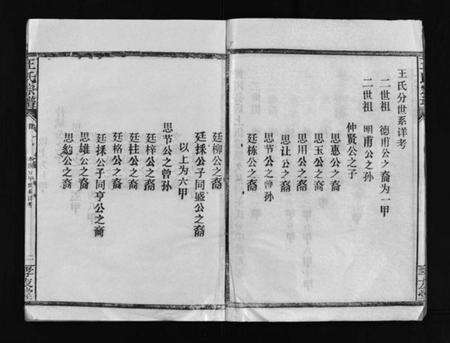 王氏分世系詳考
二世祖 德甫公之裔為一甲
二世祖 明甫公之孫
仲賢公之子
思惠公之裔
思玉公之裔
思用公之裔
思讓公之裔
思節公之曾孫
廷棟公之裔
廷柳公之裔
廷採公子同盛公之裔
以上為六甲
思節公之曾孫
廷梓公之裔
廷柱公之裔
廷格公之裔
廷採公子同亨公之裔
思雄公之裔
公之裔
王氏宗譜
二